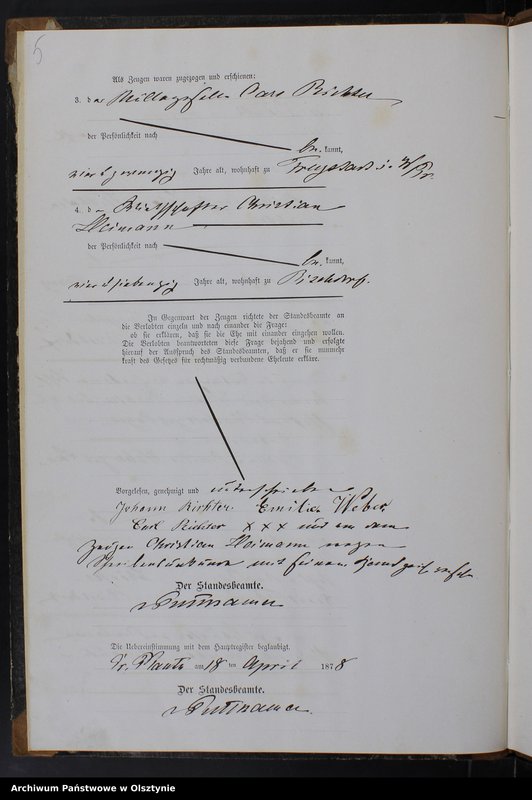 5
Als Zeugen waren zugezogen und erschienen:
3. der Carl Richter
der Persönlichkeit nach
be kannt,
vier u zwanzig Jahre alt, wohnhaft zu Freystadt i. W/Pr.
4. d Christian
Heimann
der Persönlichkeit nach
be kannt,
vier u siebenzig Jahre alt, wohnhaft zu Bischdorf.
In Gegenwart der Zeugen richtete der Standesbeamte an
die Verlobten einzeln und nach einander die Frage:
ob sie erklären, daß sie die Ehe mit einander eingehen wollen.
Die Verlobten beantworteten diese Frage bejahend und erfolgte
hierauf der Ausspruch des Standesbeamten, daß er sie nunmehr
kraft des Gesetzes für rechtmäßig verbundene Eheleute erkläre.
Vorgelesen, genehmigt und unterschrieben
Johann Richter. Emilie Weber
Carl Richter xxx und von dem
Zeugen Christian Heimann wegen
Schreibensunkunde mit seinem Handzeichen
Der Standesbeamte.
v Puttkamer
Die Uebereinstimmung mit dem Hauptregister beglaubigt.
Gr. Plauth am 18 ten April 1878
Der Standesbeamte.
v Puttkamer.
Archiwum Państwowe w Olsztynie